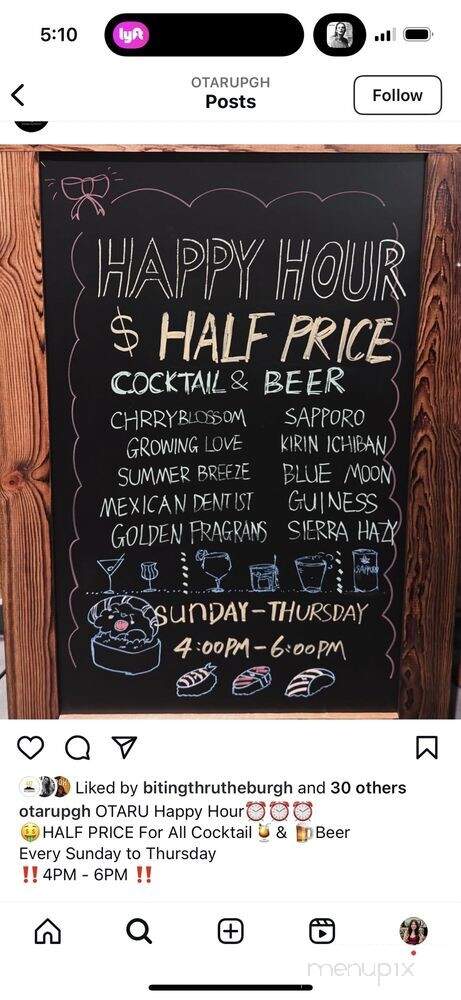 5:10
lyft
OTARUPGH
Posts
Follow
HAPPY HOUR
$ HALF PRICE
COCKTAIL & BEER
CHRRYBLOSSOM SAPPORO
GROWING LOVE KIRIN ICHIBAN
SUMMER BREEZE BLUE MOON
MEXICAN DENTIST GUINESS
GOLDEN FRAGRANS SIERRA HAZY
SAPPORO
SUNDAY-THURSDAY
4:00PM-6:00PM
Liked by bitingthrutheburgh and 30 others
otarupgh OTARU Happy Hour⏰⏰⏰
🤑HALF PRICE For All Cocktail🍹& 🍺Beer
Every Sunday to Thursday
‼️4PM - 6PM ‼️
menupix